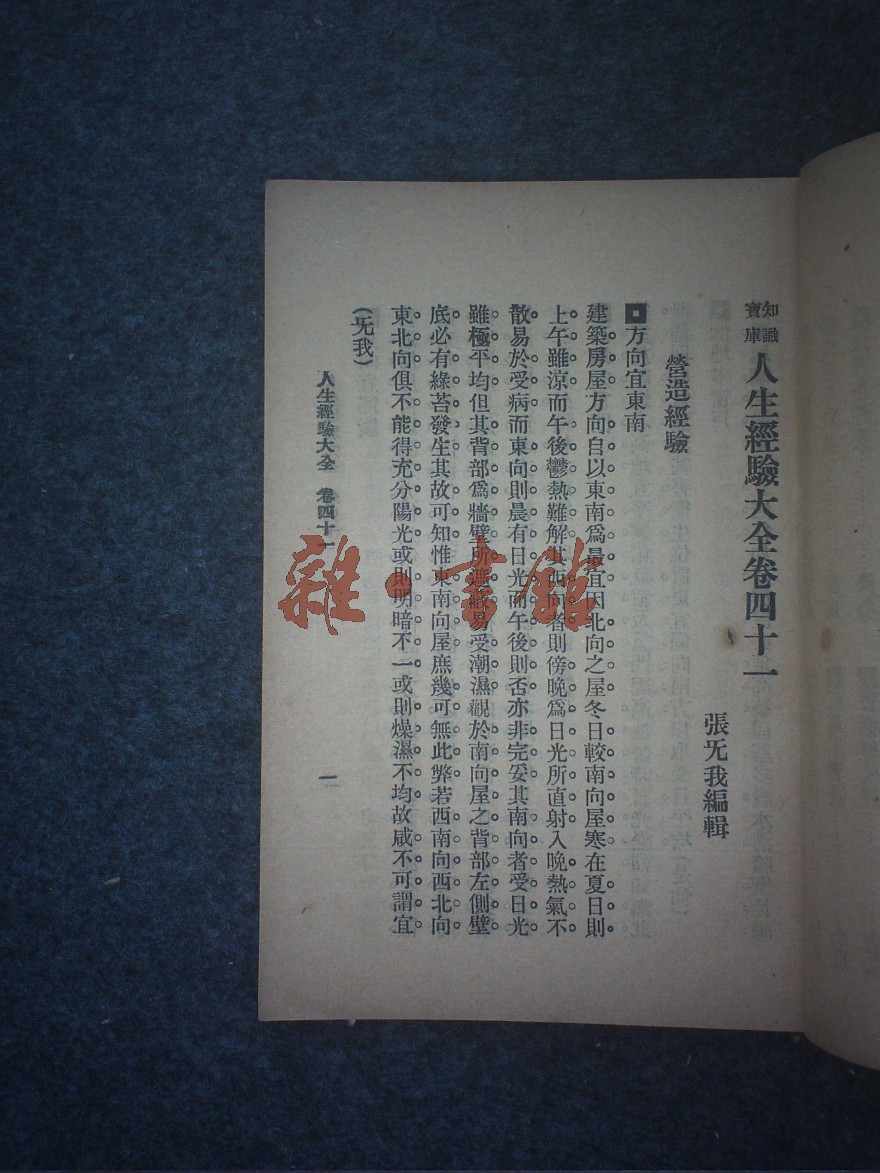 知識寶庫 人生經驗大全卷四十一
張旡我編輯
營造經驗
方向宜東南
建築房屋方向自以東南爲最宜因北向之屋冬日較南向屋寒在夏日則
上午雖涼而午後鬱熱難解其西向者則傍晚爲日光所直射入晚熱氣不
散易於受病而東向則晨有日光而午後則否亦非完妥其南向者受日光
雖極平均但其背部爲牆壁所遮蔽易受潮濕觀於南向屋之背部左側壁
底必有綠苔發生其故可知惟東南向屋庶幾可無此弊若西南向西北向
東北向俱不能得充分陽光或則明暗不一或則燥濕不均故咸不可謂宜
(旡我)
人生經驗大全 卷四十一
一
雜·書館